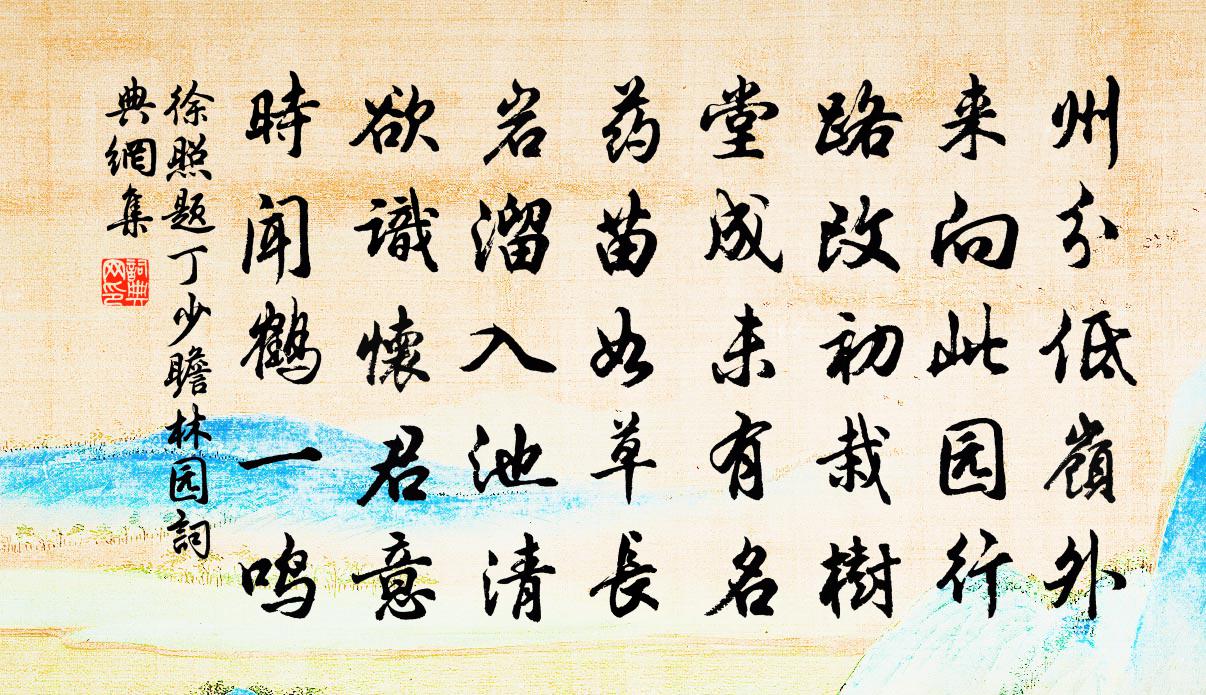 州分低嶺外
来向此园行
路改初栽樹
堂成未有名
药苗如草長
岩溜入池清
欲識懷君意
時闻鹤一鸣
徐照题丁少瞻林园詞
典網集
詞典网印